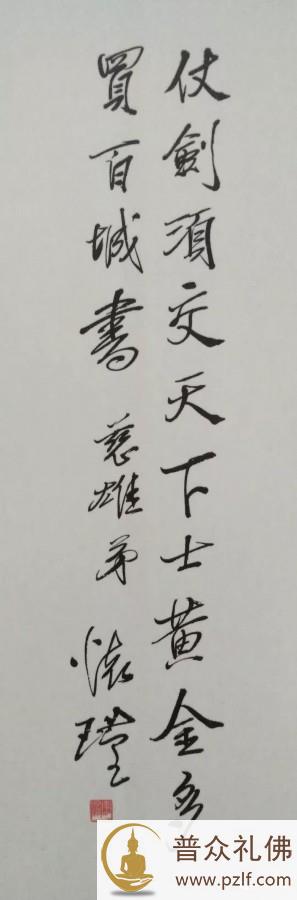 仗劍須交天下士黃金多
買百城書 慈雄弟 懷瑾
普众礼佛
www.pzlf.com